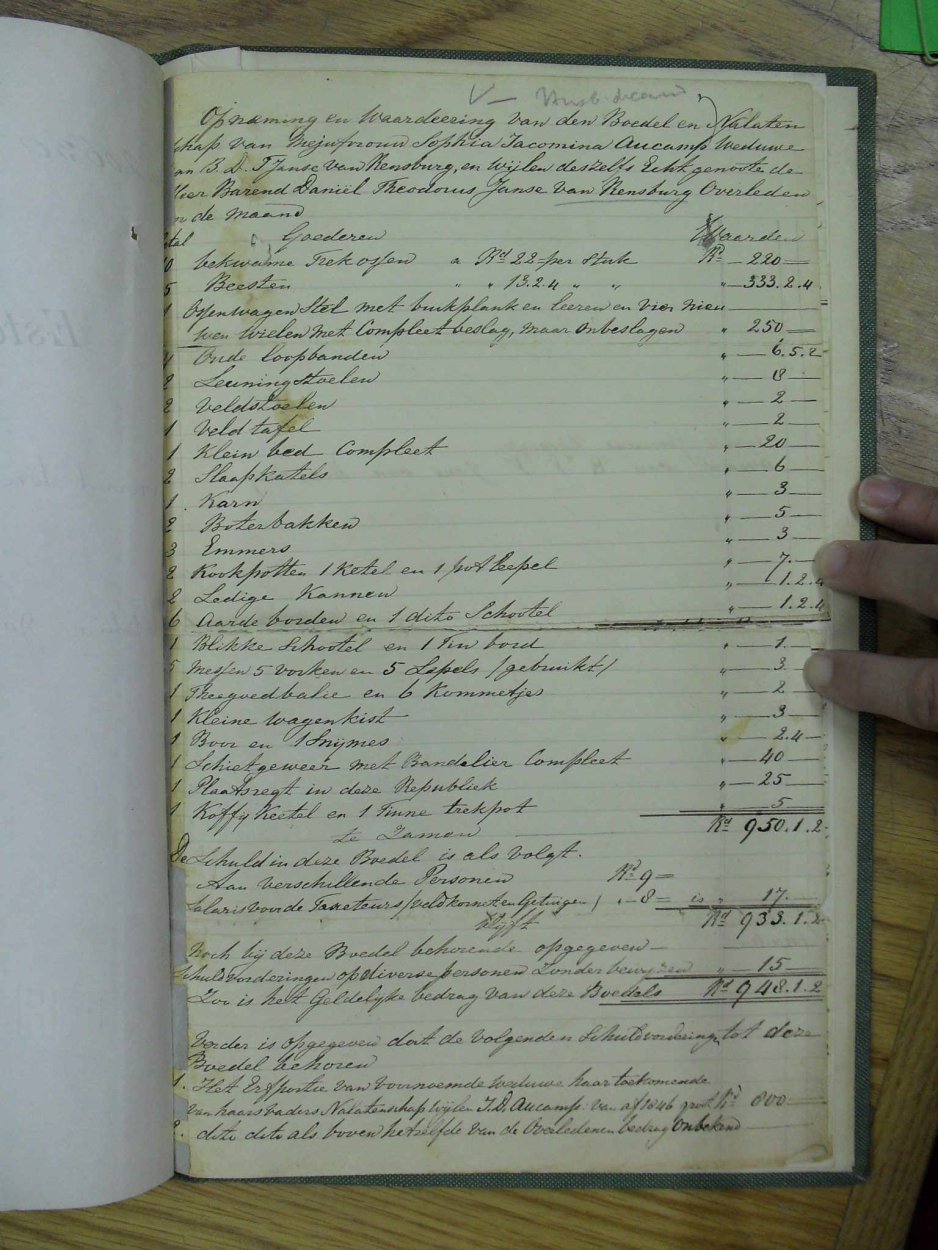 V — Husb. decand
Opneming en Waardeering van den Boedel en Nalaten
schap van Mejufvrouw Sophia Jacomina Aucamp Weduwe
van B. D. T Janse van Rensburg, en Wijlen deszelfs Echtgenoote de
Heer Barend Daniel Theodorus Janse van Rensburg Overleden
in de maand
tal Goederen Waarden
10 bekwame Trek ossen a Rd 22 - per stuk Rd — 220 —
5 Beesten " " 13.2.4 " " " — 333.2.4
1 Ossenwagen Stel met buikplank en leeren en vier nieu
wen wielen met Compleet beslag, maar onbeslagen " 250 —
4 Oude loopbanden " — 6.5.2
2 Leuningstoelen " — 18 —
2 Veldstoelen " — 2 —
1 Veld tafel " — 2 —
1 Klein bed Compleet " — 20 —
2 Slaapkatels " — 6 —
1 Karn " — 3 —
2 Boterbakken " — 5 —
3 Emmers " — 3 —
2 Kookpotten 1 Ketel en 1 pot Leepel " — 7. —
2 Ledige Kannen " — 1.2.4
6 Aarde borden en 1 dito Schootel " — 1.2.4
1 Blikke Schootel en 1 Tin bord " — 1. —
5 Messen 5 vorken en 5 Lepels /gebruikt/ " — 3 —
1 Theegoedbalie en 6 Kommetjes " — 2 —
1 Kleine wagenkist " — 3 —
1 Boor en 1 Snijmes " — 2.4 —
1 Schietgeweer met Bandelier Compleet " — 40 —
1 Plaatsregt in deze Republiek " — 25 —
1 Koffy Keetel en 1 Tinne trekpot " — 5 —
te Zamen Rd 950.1.2
De Schuld in deze Boedel is als volgt.
Aan verschillende Personen Rd 9 =
Salaris voor de Taxeteurs /veldkornet en Getuigen/ " - 8 = is " 17. —
Blyft Rd 933.1.2
Noch bij deze Boedel behorende opgegeven —
Schuldvorderingen op diverse personen Zonder bewyzen " — 15 —
Zoo is het Geldelijke bedrag van deze Boedels Rd 948.1.2
Verder is opgegeven dat de volgenden Schuldvordering tot deze
Boedel behoren
1. Het Erfportie van voornoemde weduwe haar toekomende
van haars vaders Nalatenschap wijlen J. D. Aucamp van af 1846 groot Rd 800 —
2. dito dito als boven hetzelfde van de Overledenen bedrag Onbekend —